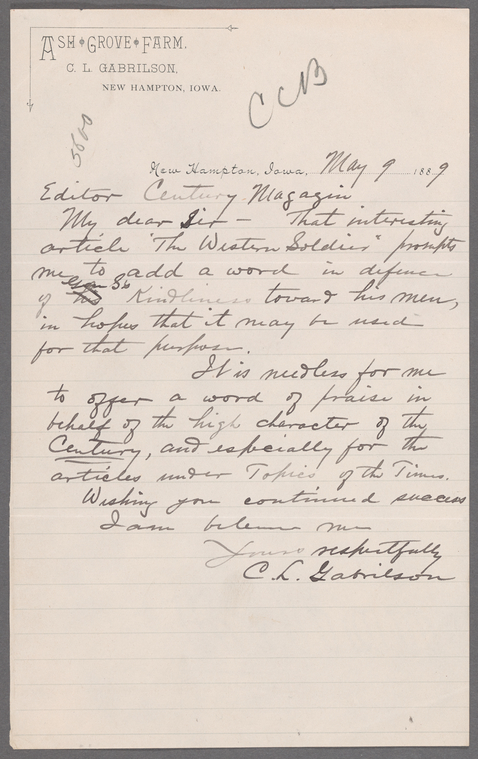 ASH GROVE FARM.
C. L. GABRILSON,
NEW HAMPTON, IOWA.
CCB
3600
New Hampton, Iowa, May 9 1889
Editor Century Magazin
My dear Sir — That interesting
article "The Western Soldier" prompts
me to add a word in defence
of his Kindliness toward his men,
in hopes that it may be used
for that purpose.
It is needless for me
to offer a word of praise in
behalf of the high character of the
Century, and especially for the
articles under Topics of the Times.
Wishing you continued success
I am believe me
Yours respectfully
C. L. Gabrilson